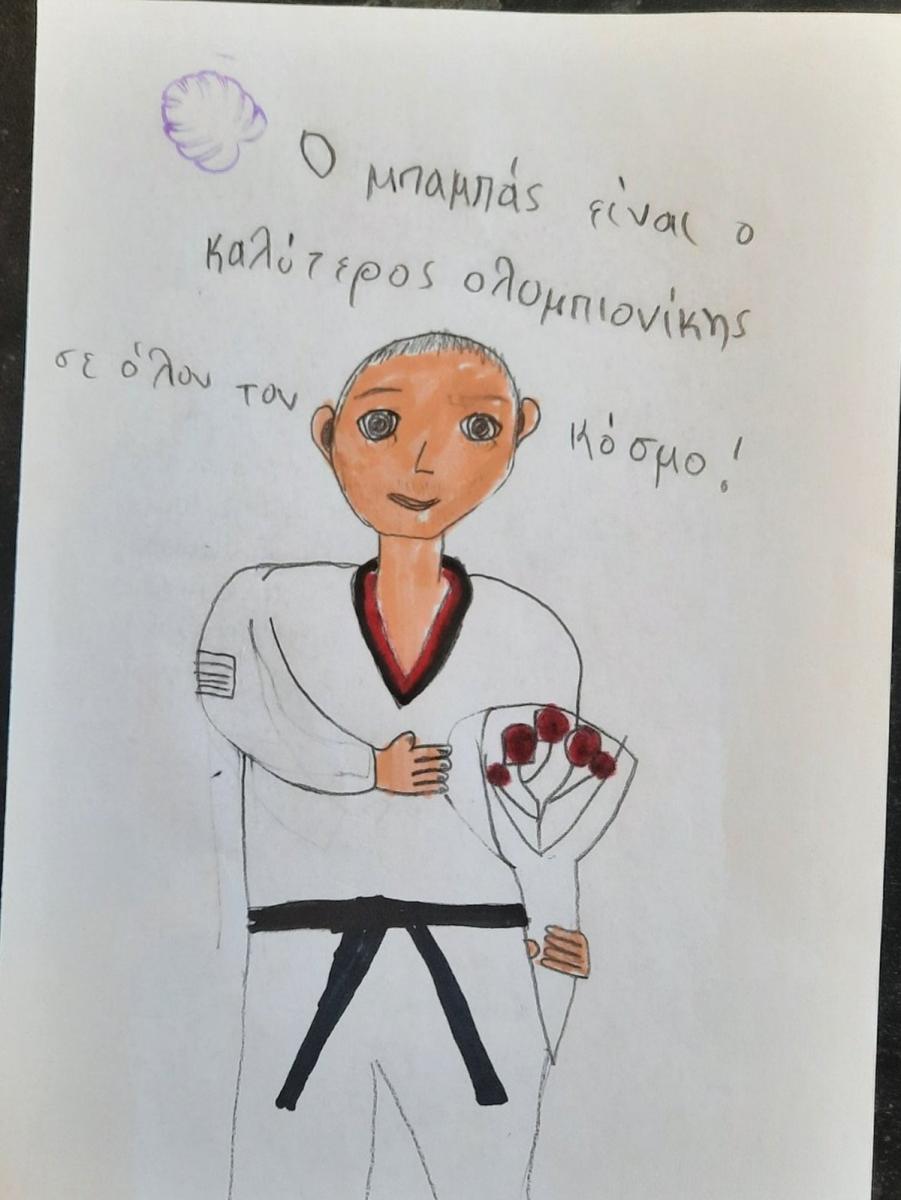 Ο μπαμπάς είναι ο
καλύτερος ολυμπιονίκης
σε όλον τον κόσμο!